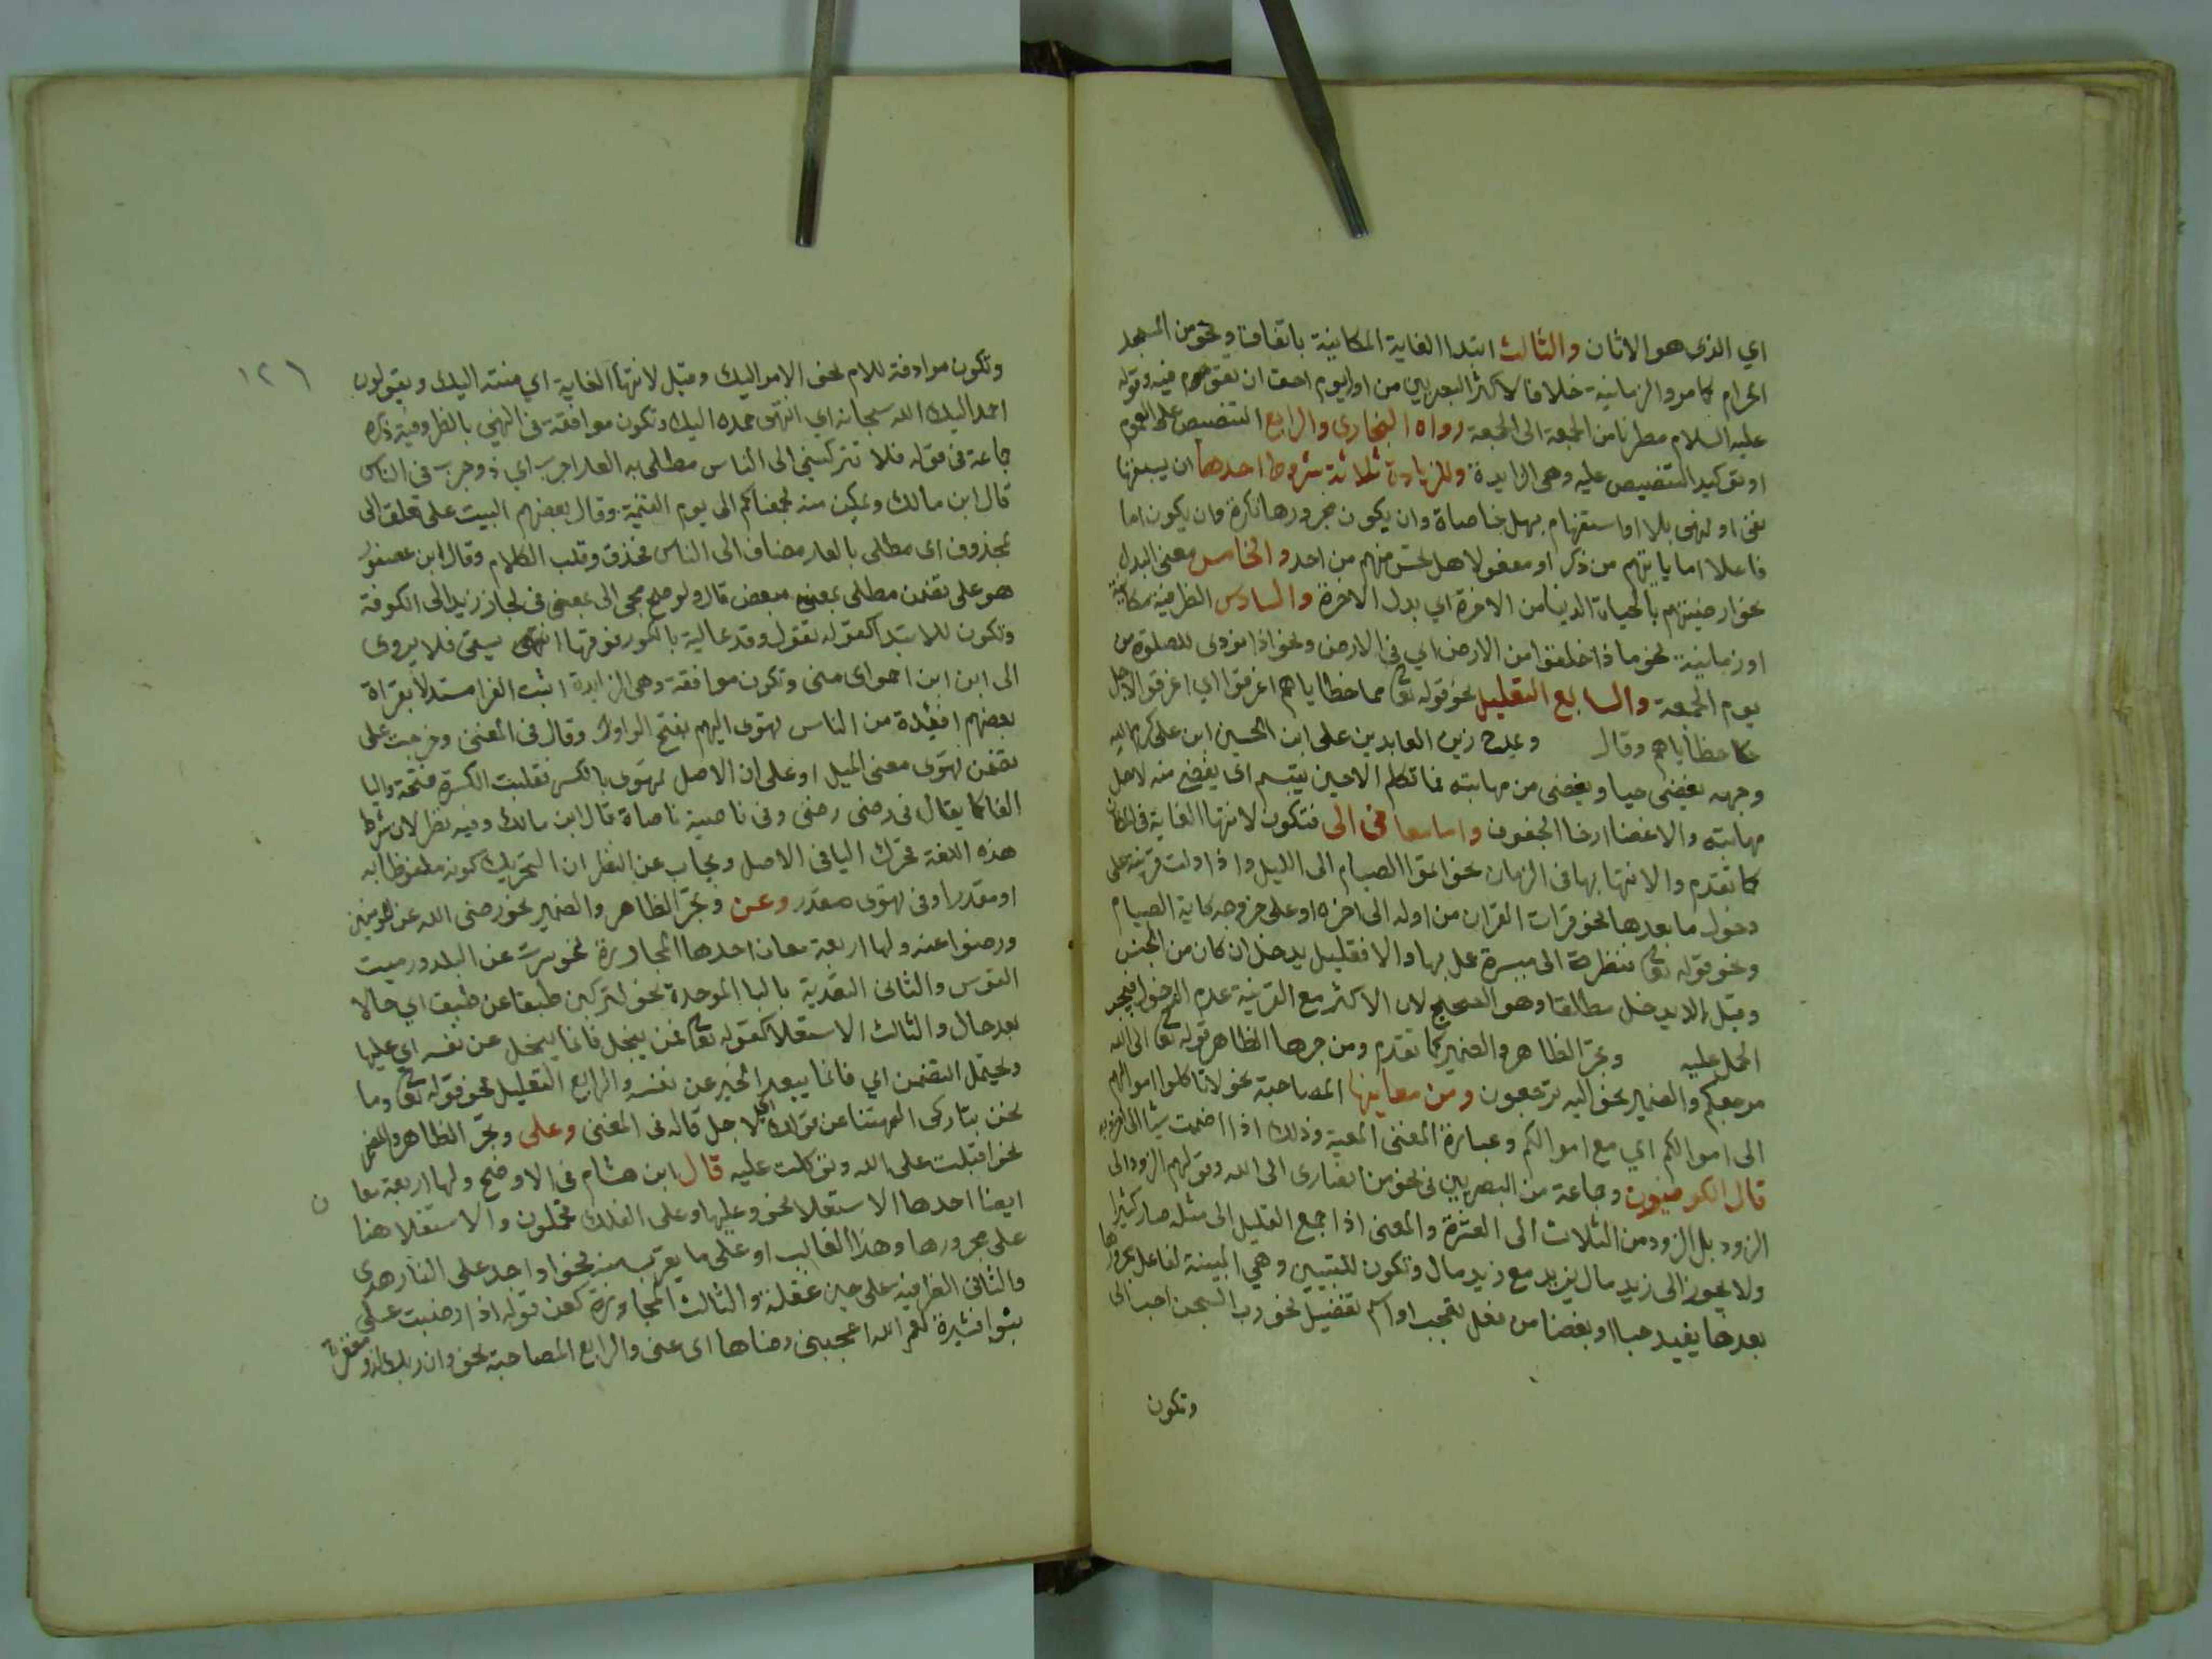 اي الذى هو الاثان والثالث ابتدا الغاية المكانية باتفاقنا ونحو من المسجد
الحرام كما مر والزمانية خلافا لاكثر البصريين من اول يوم احق ان تقوم فيه وقوله
عليه السلام مطرنا من الجمعة الى الجمعة رواه البخارى والرابع التنصيص على العموم
او توكيد التنصيص عليه وهى الزايدة وللزيادة ثلاثة شروط احدها ان يسبقها
نفى او نهى بلا او استفهام بهل خاصاة وان يكون مجرورها نكرة وان يكون اما
فاعلا اما ياتيهم من ذكر او مفعولا هل تحس منهم من احد والخامس معنى البدل
نحو ارضيتم بالحياة الدينا من الاخرة اي بدل الاخرة والسادس الظرفية مكانية
او زمانية نحو ماذا خلقوا من الارض اي فى الارض ونحو اذا نودى للصلوة من
يوم الجمعة والسابع التعليل نحو قوله تعا مما خطاياهم اغرقوا اي اغرقوا لاجل
خطاياهم وقال زين العابدين على ابن الحسين ابن على كرم الله
وجهه يغضى حيا ويغضى من مهابته فما تكلم الا حين يبتسم اى يغضى منه لاجل
مهابته والاغضا ارخا الجفون واما معانى الى فتكون لانتها الغاية فى المكان
كما تقدم والانتها بها فى الزمان نحو اتموا الصيام الى الليل واذا دلت قرينة على
دخول ما بعدها نحو قرات القران من اوله الى اخره او على خروجه كاية الصيام
ونحو قوله تعا فنظرة الى ميسرة عمل بها والا فقليل يدخل ان كان من الجنس
وقيل الا يدخل مطلقا وهو الصحيح لان الاكثر مع القرينة عدم الدخول فيجب
الحمل عليه وتجر الظاهر والضمير كما تقدم ومن جرها الظاهر قوله تعا الى الله
مرجعكم والضمير نحو اليه ترجعون ومن معاينها المصاحبة نحو لا تاكلوا اموالهم
الى اموالكم اي مع اموالكم وعبارة المغنى المعية وذلك اذا اضممت شيا الى اخر وبه
قال الكوفيون وجماعة من البصريين فى نحو من انصارى الى الله وقولهم الزود الى
الزود بل الزود من الثلاث الى العشرة والمعنى اذا جمع القليل الى مثله صار كثيرا
ولا يجوز الى زيد مال يزيد مع زيد مال وتكون للتبيين وهي المبينة لفاعل مجرورها
بعدها يفيد حبا او بغضا من فعل تعجب او اسم تفضيل نحو رب السجن احب الى
وتكون
١٢٦
وتكون مرادفة للام نحو الامر اليك وقيل لانتها الغاية اي منته اليك ويقولون
احمد اليك الله سبحانه اي انتهى حمده اليك وتكون موافقة فى النهي بالظروفية ذكره
جاعة فى قوله فلا تتركينى الى الناس مطلى به العد اجرب اي ذو جرب فى الناس
قال ابن مالك ويمكن منه لجمعناكم الى يوم القيمة وقال بعضهم البيت على تعلق الى
بمحذوف اى مطلى بالعد مضاف الى الناس فحذف وقلب الكلام وقال ابن عصفور
هو على تضمن مطلى بمعنى مبغض قال ولو صح مجى الى بمعنى فى لجاز زيد الى الكوفة
وتكون للابتدا كقوله تقول وقد عالية بالكور فوقها انتهى يسقى فلا يروى
الى ابن ابن احمر اى منى وتكون موافقة وهى الزايدة اثبت الفرا مستدلا بقراة
بعضهم افئدة من الناس تهوى اليهم بفتح الواو وقال فى المغنى وخرجت على
تضمن تهوى معنى الميل او على ان الاصل تهوى بالكسر فقلبت الكسرة فتحة واليا
الفا كما يقال فى رضى رضى وفى ناصية ناصاة قال ابن مالك وفيه نظر لان شرط
هذه اللغة تحرك اليا فى الاصل ويجاب عن النظر ان التحريك كونه ملفوظا به
او مقدرا وفى تهوى مقدر وعن وتجر الظاهر والضمير نحو رضى الله عن المومنين
ورضوا عنه ولها اربعة معان احدها المجاوزة نحو سرت عن البلد ورميت
القوس والثانى التعدية بالبا الموحدة نحو لتركبن طبقا عن طبق اي حالا
بعد حال والثالث الاستعلا كقوله تعا فمن يبخل فانما يبخل عن نفسه اي عليها
ويحتمل التضمن اي فانما يبعد الخير عن نفسه والرابع التعليل نحو قوله تعا وما
نحن بتاركى الهتنا عن قولك اي لاجل قاله فى المغنى وعلى وتجر الظاهر والضمير
نحو اقبلت على الله وتوكلت عليه قال ابن هشام فى الاوضح ولها اربعة معان
ايضا احدها الاستعلا نحو وعليها وعلى الفلك تحملون والاستعلا هنا
على مجرورها وهذا الغالب او على ما يقرب منه نحو او اجد على النار هدى
والثانى الظرفية على حين غفلة والثالث المجاوزة كعن قوله اذا رضيت على
بنو اقشيرة لعمر الله اعجبنى رضاها اى عنى والرابع المصاحبة نحو وان ربك لذو مغفرة